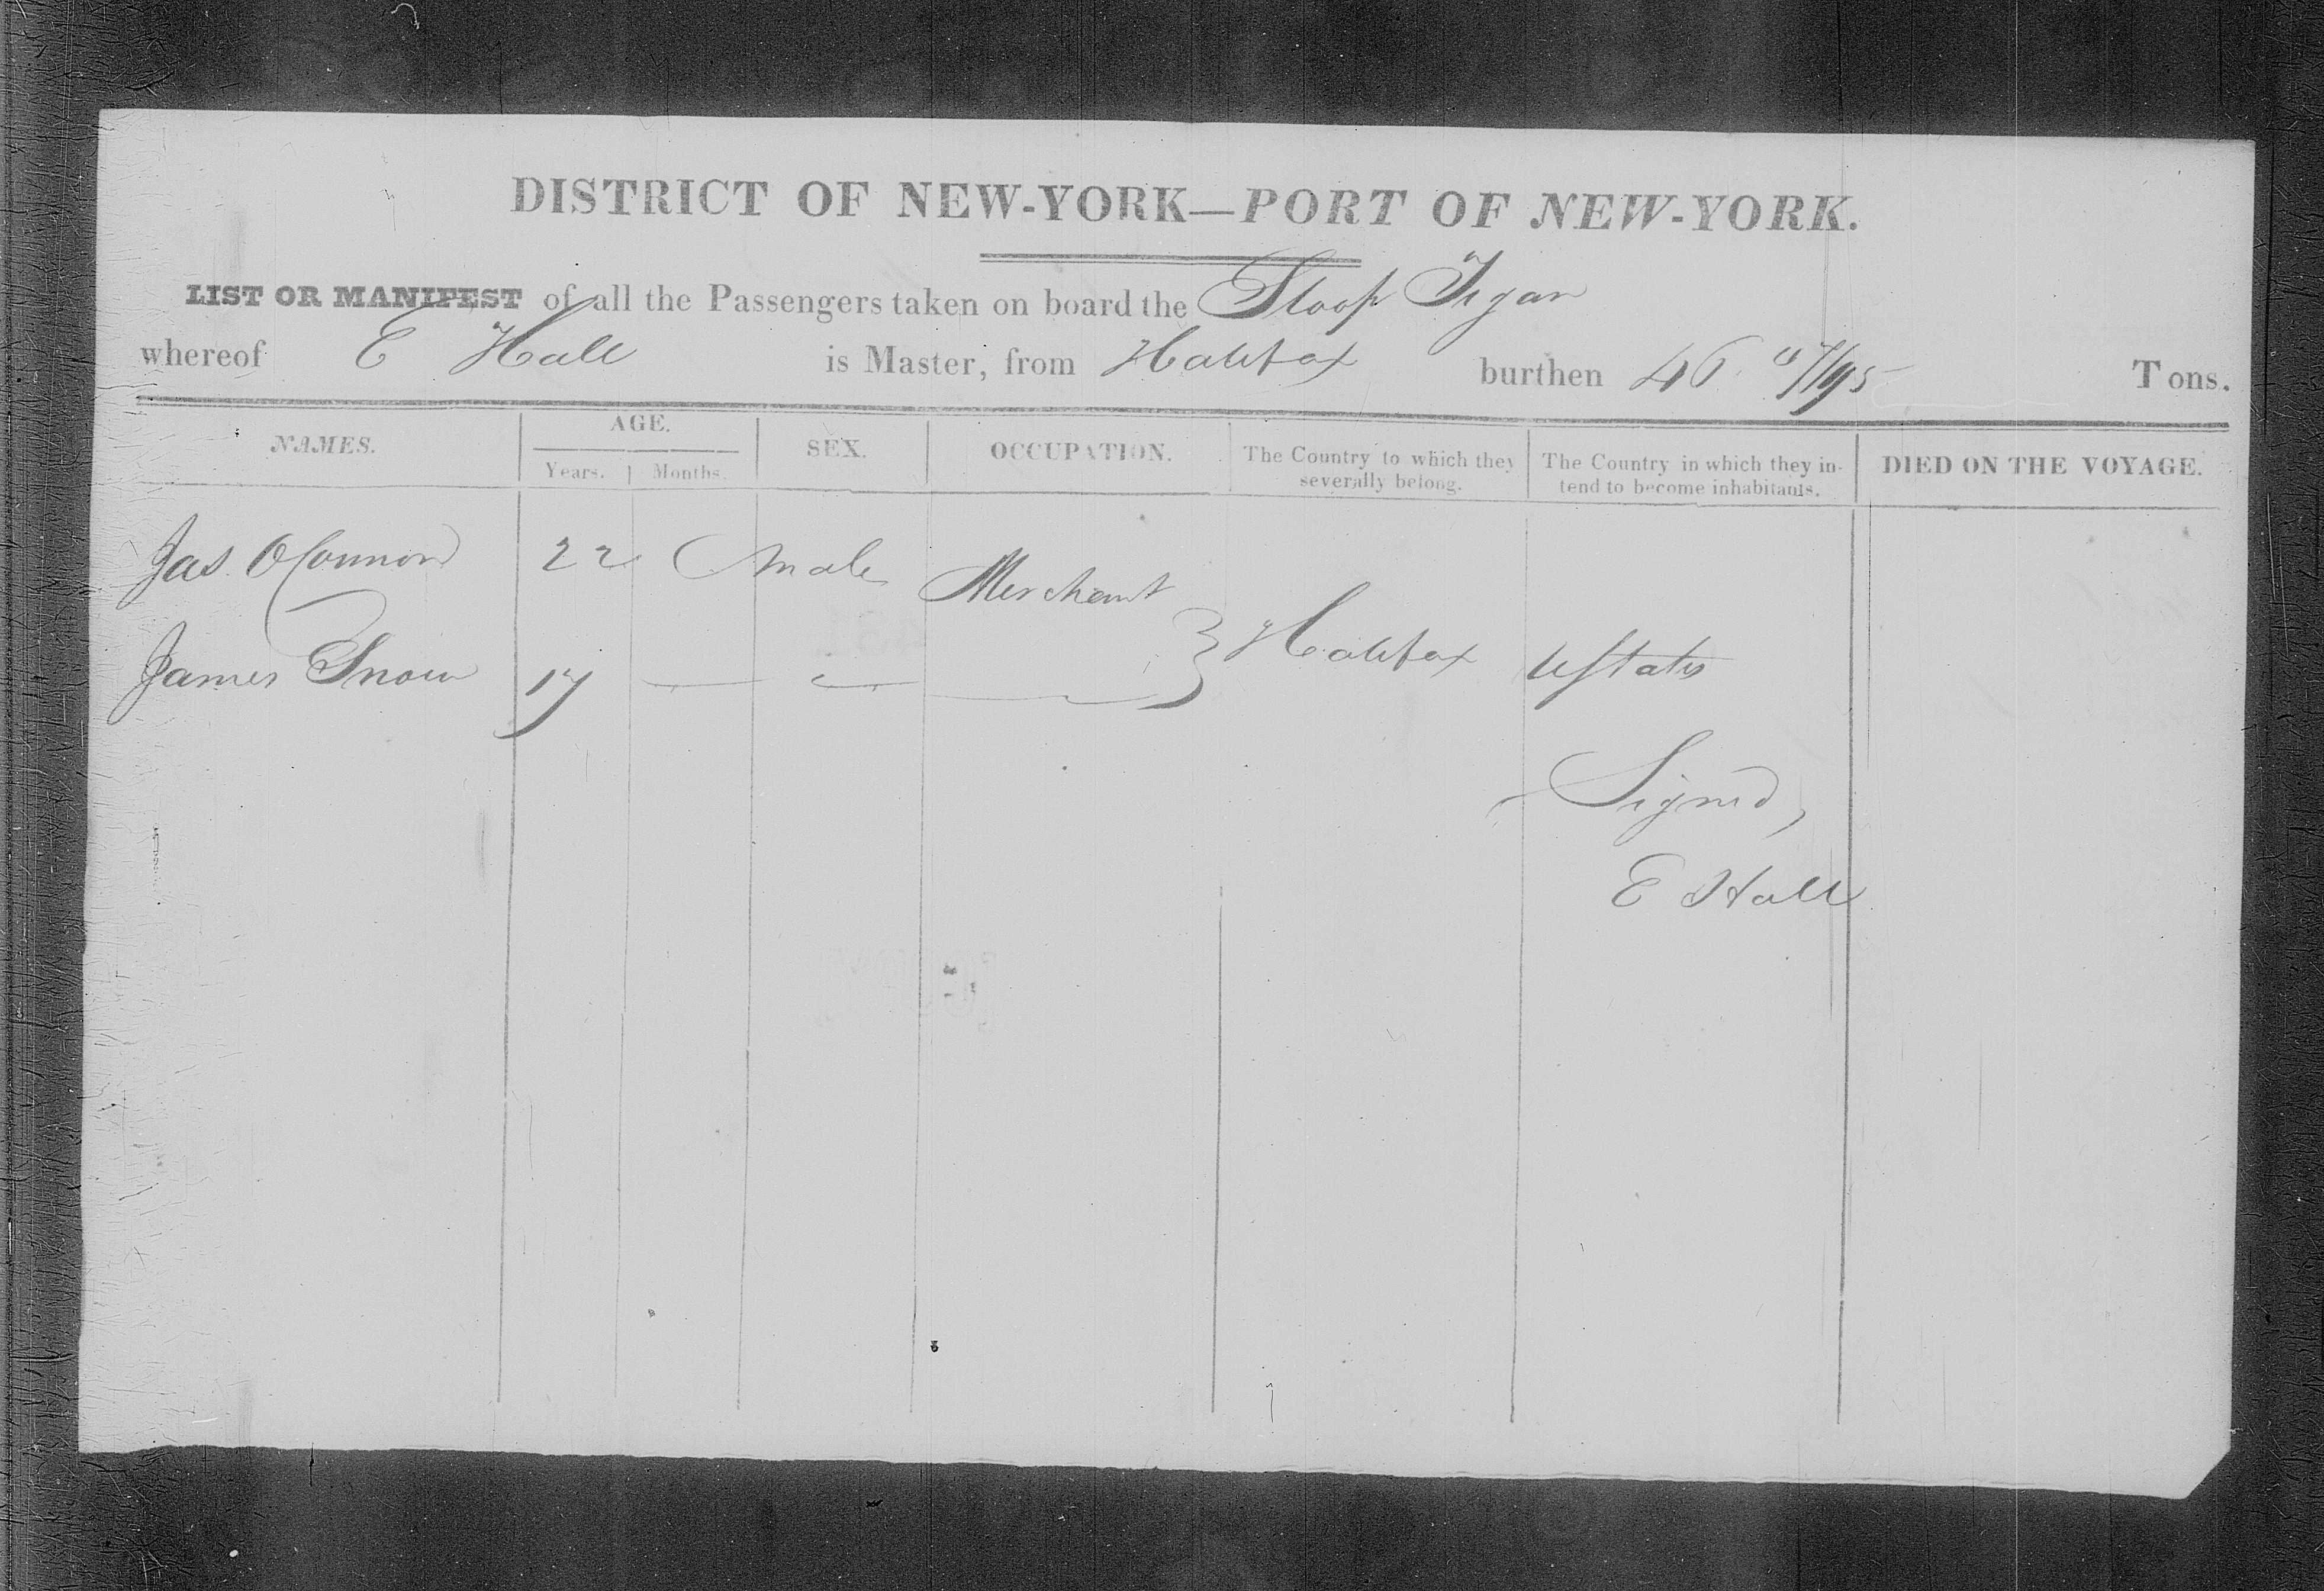 DISTRICT OF NEW-YORK—PORT OF NEW-YORK.
LIST OR MANIFEST of all the Passengers taken on board the Sloop
whereof E Hall is Master, from Halifax burthen 46 /95 Tons.
NAMES. AGE. Years. Months. SEX. OCCUPATION. The Country to which they severally belong. The Country in which they intend to become inhabitants. DIED ON THE VOYAGE.
Jas. OConnor 22 Male Merchant
James Snow 17 — — — } Halifax UStates
Signed,
E Hall